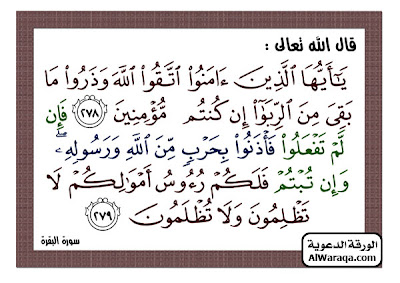 قال الله تعالى :
يَٰٓأَيُّهَا ٱلَّذِينَ ءَامَنُوا۟ ٱتَّقُوا۟ ٱللَّهَ وَذَرُوا۟ مَا
بَقِىَ مِنَ ٱلرِّبَوٰٓا۟ إِن كُنتُم مُّؤْمِنِينَ ٢٧٨ فَإِن
لَّمْ تَفْعَلُوا۟ فَأْذَنُوا۟ بِحَرْبٍ مِّنَ ٱللَّهِ وَرَسُولِهِۦ ۖ
وَإِن تُبْتُمْ فَلَكُمْ رُءُوسُ أَمْوَٰلِكُمْ لَا
تَظْلِمُونَ وَلَا تُظْلَمُونَ ٢٧٩
سورة البقرة
الورقة الدعوية
AlWaraqa.com